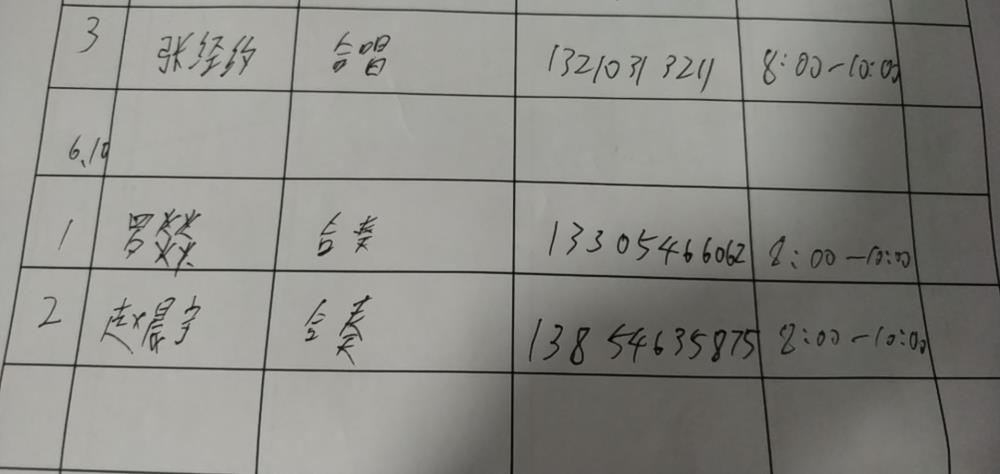 3 张经纶 合唱 13210313211 8:00-10:00
6.10
1 罗燚 合奏 13305466062 8:00-10:00
2 赵晨宇 合奏 13854635875 8:00-10:00